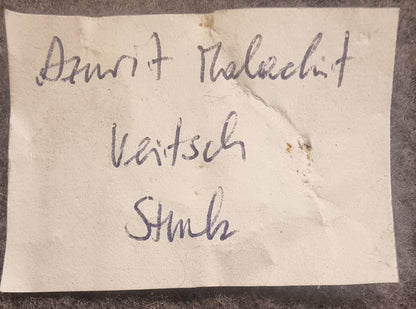 Azurit Malachit
Veitsch
Stmk